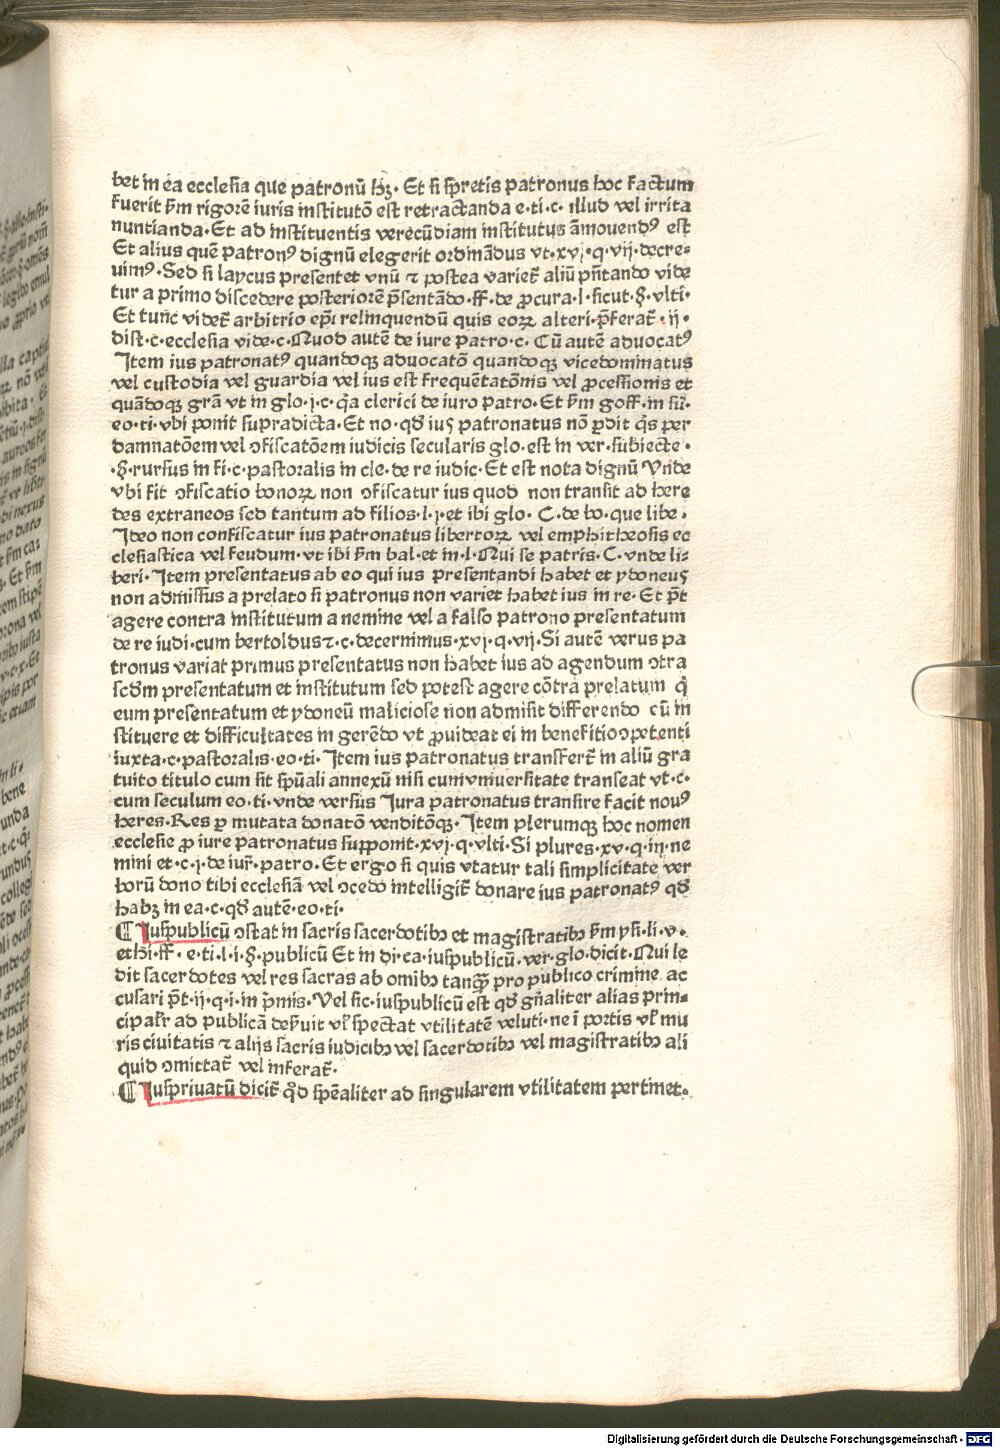 bet in ea ecclesia que patronū hʒ· Et si spretis patronus hoc factum
fuerit ẜm rigorē iuris institutō est retractanda e·ti·c· illud vel irrita
nuntianda· Et ad instituentis verecūdiam institutus āmovendꝰ est
Et alius quē patronꝰ dignū elegerit ordināndus vt·xvj·q·vij·decre-
uimꝰ· Sed si laycus presentet vnū ⁊ postea varieƫ aliū pn̄tando vide
tur a primo discedere posteriorē p̄sentādo·ff·de ꝓcura·l·sicut·§·vlti·
Et tunc videƫ arbitrio ep̄i relinquendū quis eoꝝ alteri·p̄feraƫ·ij·
dist·c·ecclesia vide·c·Quod autē de iure patro·c· Cū autē advocatꝰ
Item ius patronatꝰ quandoqꝫ advocatō quandoqꝫ vicedominatus
vel custodia vel guardia vel ius est frequētatōnis vel ꝓcessionis et
quādoqꝫ grā vt in glo·j·c·q̄a clerici de iuro patro· Et ẜm goff·in sū·
eo·ti·vbi ponit supradicta· Et no·qđ ius patronatus nō ꝑdit q̄s per
damnatōem vel ↄfiscatōem iudicis secularis glo·est in ver·subiecte·
·§·rursus in fi·c·pastoralis in cle·de re iudic· Et est nota dignū Vnde
vbi fit ↄfiscatio bonoꝝ non ↄfiscatur ius quod non transit ad here
des extraneos sed tantum ad filios·l·j·et ibi glo· C·de bo·que libe·
Ideo non confiscatur ius patronatus libertoꝝ vel emphitheosis ec
clesiastica vel feudum·vt ibi ẜm bal·et in·l·Qui se patris·C·vnde li-
beri· Item presentatus ab eo qui ius presentandi habet et ydoneus
non admissus a prelato si patronus non variet habet ius in re· Et p̄t
agere contra institutum a nemine vel a falso patrono presentatum
de re iudi·cum bertoldus⁊·c·decernimus·xvj·q·vij· Si autē verus pa
tronus variat primus presentatus non habet ius ad agendum ↄtra
scdm presentatum et institutum sed potest agere cōtra prelatum q̄
eum presentatum et ydoneū maliciose non admisit differendo cū in
stituere et difficultates in gerēdo vt ꝓuideat ei in benefitio ↄpetenti
iuxta·c·pastoralis·eo·ti· Item ius patronatus transferƫ in aliū gra
tuito titulo cum sit spūali annexū nisi cum vniversitate transeat vt·c·
cum seculum eo·ti·vnde versus Jura patronatus transire facit nouꝰ
heres· Res ꝑ mutata donatō venditōqꝫ· Item plerumqꝫ hoc nomen
ecclesie ꝓ iure patronatus supponit·xvj·q·vlti· Si plures·xv·q·iij·ne
mini et·c·j·de iur̄·patro· Et ergo si quis vtatur tali simplicitate ver
borū dono tibi ecclesiā vel ↄcedo intelligiƫ donare ius patronatꝰ qđ
habꝫ in ea·c·qđ autē·eo·ti·
¶ Juspublicū ↄstat in sacris sacerdotibꝫ et magistratibꝫ ẜm ysi·li·v·
et hi·ff·e·ti·l·i·§·publicū Et in di·ea·iuspublicū·ver·glo·dicit· Qui le
dit sacerdotes vel res sacras ab omibꝫ tanqꝫ pro publico crimine ac
cusari p̄t·ij·q·i·in p̄mis· Vel sic·iuspublicū est qđ gn̄aliter alias prin-
cipalr̄ ad publicā debuit vl̄ spectat vtilitatē veluti·ne ī portis vl̄ mu
ris civitatis ⁊ alijs sacris iudicibꝫ vel sacerdotibꝫ vel magistratibꝫ ali
quid omittaƫ vel inferaƫ·
¶ Jusprivatū diciƫ qđ spēaliter ad singularem vtilitatem pertinet·
Digitalisierung gefördert durch die Deutsche Forschungsgemeinschaft - DFG